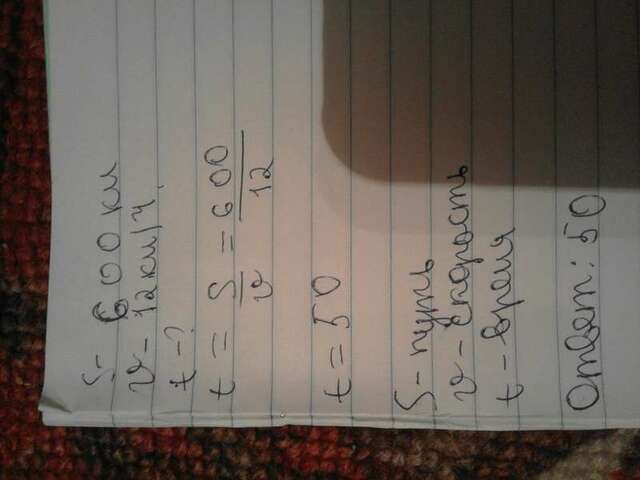 S - 600 км
v - 12 км/ч.
t - ?
t = S/v = 600/12
t = 50
S - путь
v - скорость
t - время
Ответ: 50